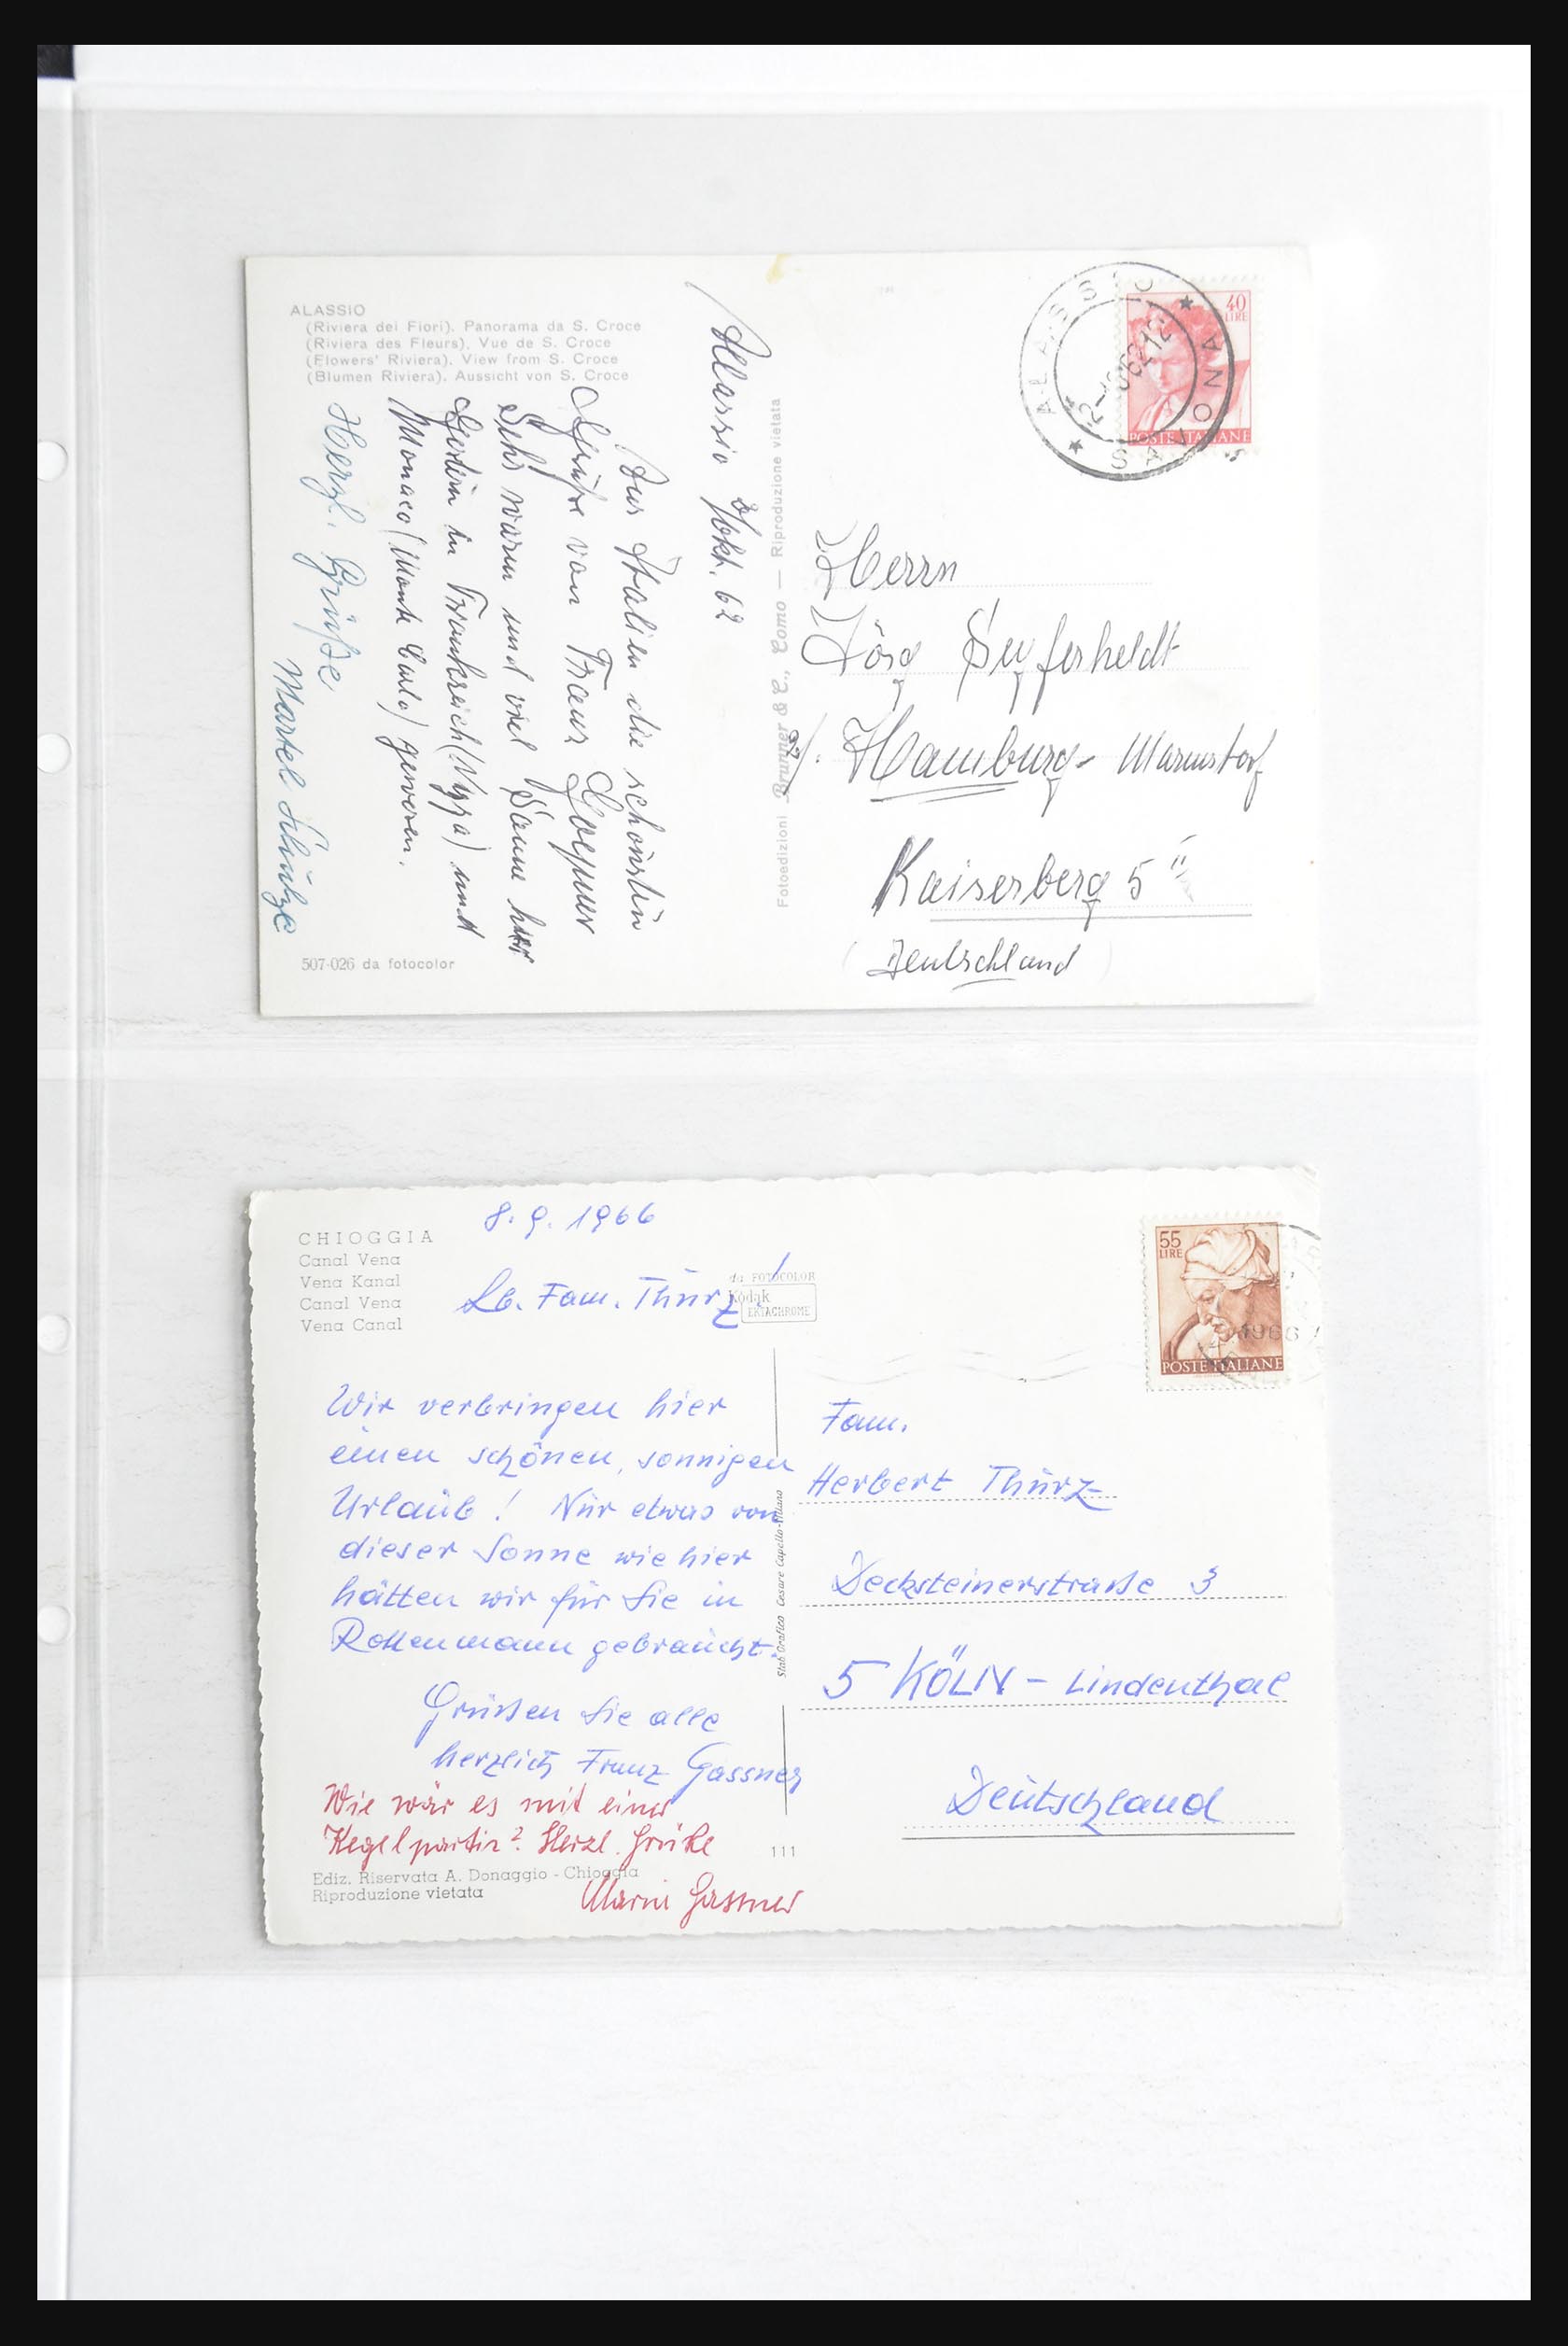 ALASSIO
(Riviera dei Fiori). Panorama da S. Croce
(Riviera des Fleurs). Vue de S. Croce
(Flowers' Riviera). View from S. Croce
(Blumen Riviera). Aussicht von S. Croce
Alassio Okt. 62
Aus Italien die schönsten
Grüße von Frau
Sehr warm und viel Sonne hier
Gestern in Frankreich (Nizza) und
Monaco (Monte Carlo) gewesen.
Herzl. Grüße
Martel Schulze
507-026 da fotocolor
Fotoedizioni Brunner & C., Como — Riproduzione vietata
ALASSIO
SAVONA
40
LIRE
POSTE ITALIANE
Herrn
Jörg Seyferheldt
Hamburg- Marmstorf
Kaiserberg 5
(Deutschland)
CHIOGGIA
Canal Vena
Vena Kanal
Canal Vena
Vena Canal
8.9.1966
Lb. Fam. Thürz!
da FOTOCOLOR
Kodak
EKTACHROME
Wir verbringen hier
einen schönen, sonnigen
Urlaub! Nur etwas von
dieser Sonne wie hier
hätten wir für Sie in
Rottenmann gebraucht.
Grüßen Sie alle
herzlich Franz Gassner
Wie wär es mit einer
Kegelpartie? Herzl. Grüße
Maria Gassner
Ediz. Riservata A. Donaggio - Chioggia
Riproduzione vietata
111
Stab Grafico Cesare Capello-Milano
55
LIRE
POSTE ITALIANE
1966
Fam.
Herbert Thürz
Decksteinerstraße 3
5 KÖLN - Lindenthal
Deutschland